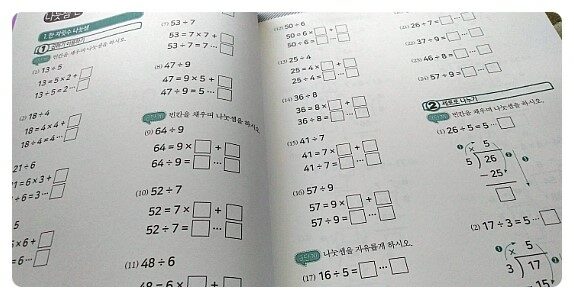 나눗셈
1. 한 자릿수 나눗셈
1
빈칸을 채우며 나눗셈을 하시오.
(1) 13÷5
13=5×2+□
13÷5=2···□
(2) 18÷4
18=4×4+□
18÷4=4···□
21÷6
=6×3+□
÷6=3···□
×6+□
(7) 53÷7
53=7×7+□
53÷7=7···□
(8) 47÷9
47=9×5+□
47÷9=5···□
빈칸을 채우며 나눗셈을 하시오.
(9) 64÷9
64=9×□+□
64÷9=□···□
(10) 52÷7
52=7×□+□
52÷7=□···□
(11) 48÷6
48=6×□+□
(12) 50÷6
50÷6×□+□
50÷6=□···□
(13) 25÷4
25=4×□+□
25÷4=□···□
(14) 36÷8
36=8×□+□
36÷8=□···□
(15) 41÷7
41=7×□+□
41÷7=□···□
(16) 57÷9
57=9×□+□
57÷9=□···□
나눗셈을 자유롭게 하시오.
(17) 16÷5=□···□
26÷7=□···□
37÷9=□···□
46÷8=□···□
(24) 57÷9=□···□
2 세로로 나누기
빈칸을 채우며 나눗셈을 하시오.
(1) 26÷5=5···□
× 5
5 26
-25
□
(2) 17÷3=5···□
× 5
3 17
-15